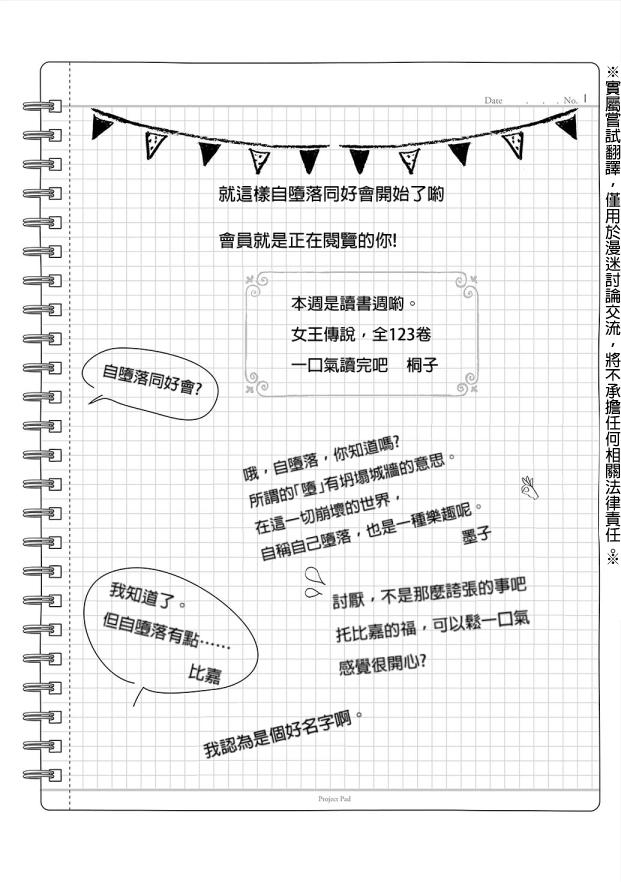 Date . . . No. 1
就這樣自墮落同好會開始了喲
會員就是正在閱覽的你!
本週是讀書週喲。
女王傳說，全123卷
一口氣讀完吧 桐子
自墮落同好會?
哦，自墮落，你知道嗎?
所謂的「墮」有坍塌城牆的意思。
在這一切崩壞的世界，
自稱自己墮落，也是一種樂趣呢。
墨子
我知道了。
但自墮落有點……
比嘉
討厭，不是那麼誇張的事吧
托比嘉的福，可以鬆一口氣
感覺很開心?
我認為是個好名字啊。
Project Pad
※實屬嘗試翻譯，僅用於漫迷討論交流，將不承擔任何相關法律責任。※